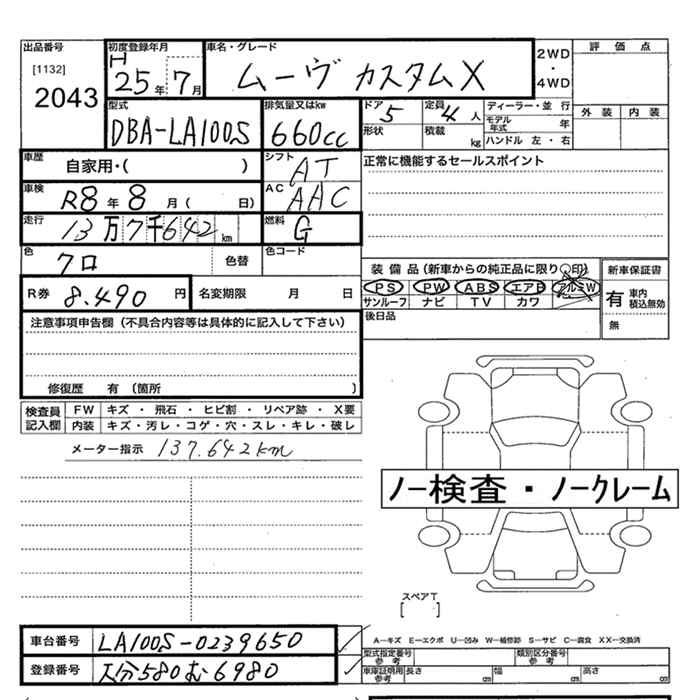 出品番号 初度登録年月 車名・グレード 2WD・4WD 評価点
[1132] 2043 H25年7月 ムーヴ カスタムX
外装 内装
型式 DBA-LA100S 排気量又はkw 660cc ドア 5 定員 4人 ディーラー・並行
形状 積載 kg モデル年式 年
ハンドル 左・右
車歴 自家用・( ) シフト AT 正常に機能するセールスポイント
車検 R8年8月( 日) AC AAC
走行 13万7千642km 燃料 G
色 クロ 色替 色コード
装備品(新車からの純正品に限り○印) 新車保証書
R券 8.490円 名変期限 月 日 PS PW ABS エアB アルミW 有 車内積込無効
サンルーフ ナビ TV カワ
無
注意事項申告欄(不具合内容等は具体的に記入して下さい) 後日品
修復歴 有(箇所 )
検査員記入欄 FW キズ・飛石・ヒビ割・リペア跡・X要
内装 キズ・汚レ・コゲ・穴・スレ・キレ・破レ
メーター指示 137.642km
ノー検査・ノークレーム
スペアT
[ ]
車台番号 LA100S-0239650 A−キズ E−エクボ U−凹み W−補修跡 S−サビ C−腐食 XX−交換済
型式指定番号 参考 類別区分番号 参考
登録番号 大分580む6980 車庫証明用参考 長さ cm 幅 cm 高さ cm